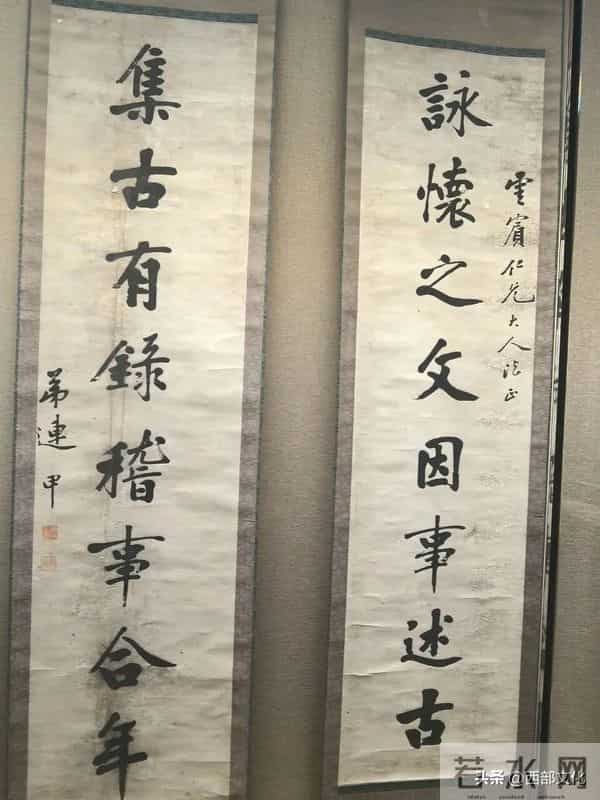 雲賓仁兄大人法正
詠懷之文因事述古
集古有錄稽事合年
弟連甲
若水网
头条 @西部文化